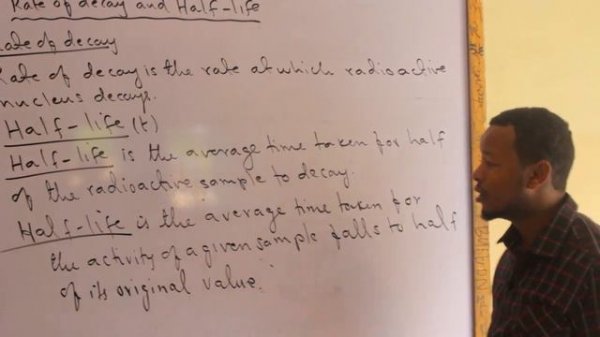 Rate of decay and Half-life
Rate of decay
Rate of decay is the rate at which radioactive
nucleus decays.
Half-life (t)
Half-life is the average time taken for half
of the radioactive sample to decay.
Half-life is the average time taken for
the activity of a given sample falls to half
of its original value.